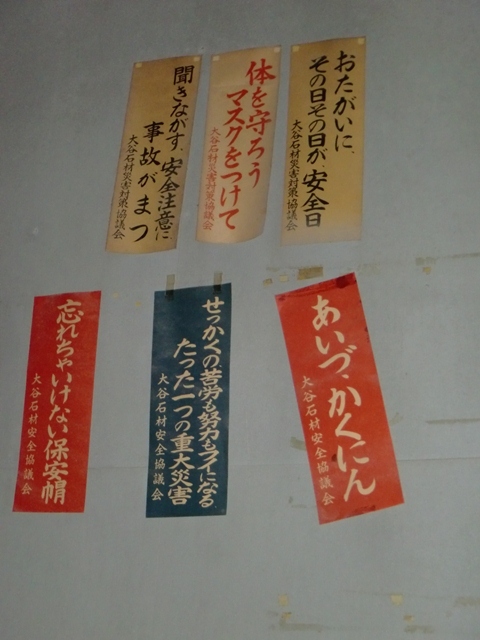 おたがいに、
その日その日が安全日
大谷石材災害対策協議会
体を守ろう
マスクをつけて
大谷石材災害対策協議会
聞きながす、安全注意に
事故がまつ
大谷石材災害対策協議会
あいづ、かくにん
大谷石材安全協議会
せっかくの苦労も努力もフイになる
たった一つの重大災害
大谷石材安全協議会
忘れちゃいけない保安帽
大谷石材安全協議会